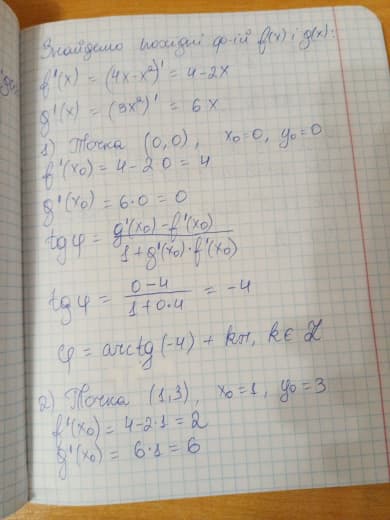 Знайдемо похідні ф-ій f(x) і g(x):
f'(x) = (4x-x²)' = 4-2x
g'(x) = (3x²)' = 6x
1) Точка (0,0), x₀=0, y₀=0
f'(x₀) = 4-2·0 = 4
g'(x₀) = 6·0 = 0
tg φ = (g'(x₀) - f'(x₀)) / (1+g'(x₀)·f'(x₀))
tg φ = (0-4) / (1+0·4) = -4
φ = arctg(-4) + kπ, k ∈ Z
2) Точка (1,3), x₀=1, y₀=3
f'(x₀) = 4-2·1 = 2
g'(x₀) = 6·1 = 6